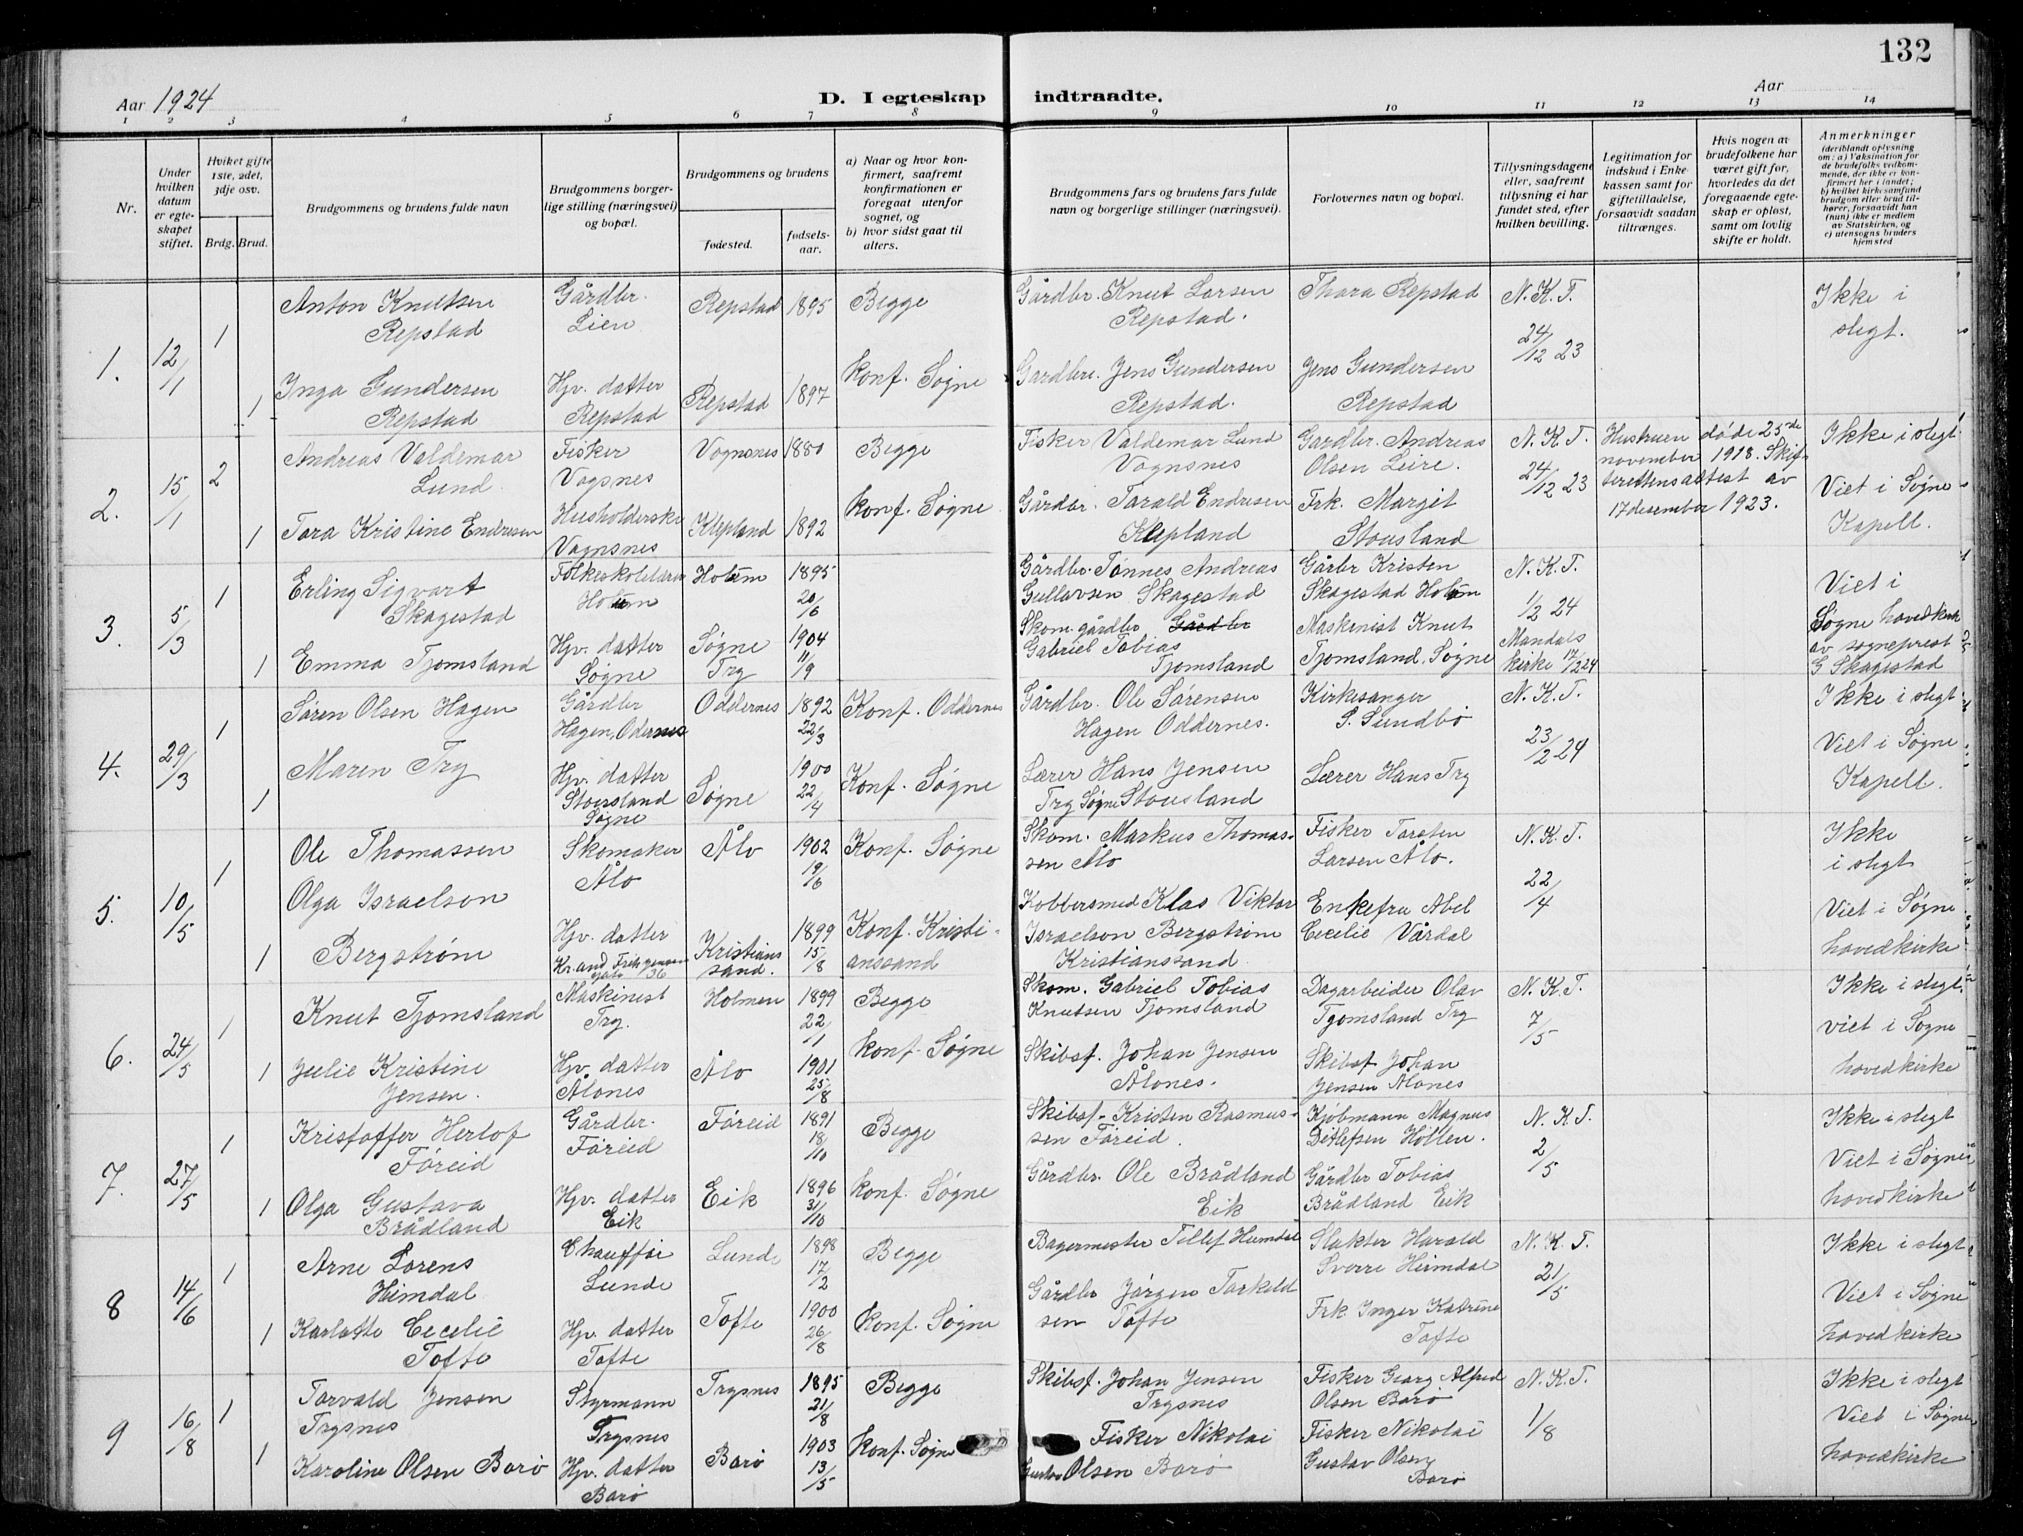 132
Aar 1924
D. I egteskap indtraadte.
Aar
1 2 3 4 5 6 7 8 9 10 11 12 13 14
Nr.
Under hvilken datum er egteskapet stiftet.
Hviket gifte 1ste, 2det, 3dje osv.
Brdg. Brud.
Brudgommens og brudens fulde navn
Brudgommens borgerlige stilling (næringsvei) og bopæl.
Brudgommens og brudens
fødested.
fødselsaar.
a) Naar og hvor konfirmert, saafremt konfirmationen er foregaat utenfor sognet, og
b) hvor sidst gaat til alters.
Brudgommens fars og brudens fars fulde navn og borgerlige stillinger (næringsvei).
Forlovernes navn og bopæl.
Tillysningsdagene eller, saafremt tillysning ei har fundet sted, efter hvilken bevilling.
Legitimation for indskud i Enkekassen samt for giftetilladelse, forsaavidt saadan tiltrænges.
Hvis nogen av brudefolkene har været gift før, hvorledes da det foregaaende egteskap er opløst, samt om lovlig skifte er holdt.
Anmerkninger (deriblandt oplysning om: a) Vaksination for de brudefolks vedkommende, der ikke er konfirmert her i landet; b) hvilket kirkesamfund brudgom eller brud tilhører, forsaavidt han (hun) ikke er medlem av Statskirken, og c) utensogns bruders hjemsted
1. 12/1 1
Anton Knutsen Repstad
Gårdbr. Lien
Repstad 1895
Begge
Gårdbr. Knut Larsen Repstad.
Thara Repstad
N. K. T.
24/12 23
Ikke i slegt.
1
Inga Gundersen Repstad
Hjv. datter Repstad
Repstad 1897
konf. Søgne
Gardbr. Jens Gundersen Repstad.
Jens Gundersen Repstad
2. 15/1 2
Andreas Valdemar Lund
Fisker Vagsnes
Vognsnes 1880
Begge
Fisker Valdemar Lund Vognsnes
Gardbr. Andreas Olsen Leire.
N. K. T.
24/12 23
Hustruen døde 25de november 1918. Skifterettensattest av 17 desember 1923.
Ikke i slegt
Viet i Søgne Kapell.
1
Tara Kristine Endresen
Husholderske Vognsnes
Klepland 1892
konf. Søgne
Gårdbr. Tarald Endresen Klepland
Frk. Margit Stousland
3. 5/3 1
Erling Sigvart Skagestad
Folkeskolelærer Holum
Holum 1895 20/6
Gårdbr. Tønnes Andreas Gullavsen Skagestad
Gårbr Kristen Skagestad Holum
N. K. T.
1/2 24
Mandals kirke 17/2 24
Viet i Søgne hovedkirke av sogneprest G. Skagestad
1
Emma Tjomsland
Hjv. datter Søgne
Søgne Try 1904 11/9
Skom. gårdbr Gårdbr Gabriel Tobias Tjomsland
Maskinist Knut Tjomsland. Søgne
4. 29/3 1
Søren Olsen Hagen
Gårdbr Hagen, Odernes
Oddernes 1892 22/3
Konf. Oddernes
Gårdbr. Ole Sørensen Hagen Oddernes.
Kirkesanger S. Sundbø
N. K. T.
23/2 24
Ikke i slegt
Viet i Søgne Kapell.
1
Maren Try
Hjv. datter Stousland Søgne
Søgne 1900 22/4
Konf. Søgne
Lærer Hans Jensen Try Søgne Stousland
Lærer Hans Try
5. 10/5 1
Ole Thomassen
Skomaker Ålo
Ålo 1902 19/6
Konf. Søgne
Skom. Markus Thomassen Ålo
Fisker Tarsten Larsen Ålo.
N. K. T.
22/4
Ikke i slegt
Viet i Søgne hovedkirke
1
Olga Israelson Bergstrøm
Hjv. datter Kr.and
Kristianssand. 1899 15/8
Konf. Kristianssand
Kobbersmed Klas Viktor Israelson Bergstrøm Kristianssand.
Enkefru Abel Cecelie Vårdal
6. 24/5 1
Knut Tjomsland
Maskinist Try.
Holmen 1899 22/1
Begge
Skom. Gabriel Tobias Knutsen Tjomsland
Dagarbeider Olav Tjomsland Try
N. K. T.
7/5
Ikke i slegt.
viet i Søgne hovedkirke
1
Julie Kristine Jensen.
Hjv. datter Ålones
Ålo 1901 25/8
konf. Søgne
Skibsf. Johan Jensen Ålones.
Skibsf Johan Jensen Ålones
7. 27/5 1
Kristoffer Herlof Føreid
Gårdbr. Føreid
Føreid 1891 18/10
Begge
Skibsf. Kristen Rasmussen Føreid.
Kjøbmann Magnus Ditlefsen Høllen.
N. K. T.
2/5
Ikke i slegt
Viet i Søgne hovedkirke
1
Olga Gustava Brådland
Hjv. datter Eik
Eik 1896 31/10
konf. Søgne
Gårdbr. Ole Brådland Eik
Gårdbr Tobias Brådland Eik
8 14/6 1
Arne Lorens Heimdal
Chauffør Lunde
Lunde 1898 17/2
Begge
Bagermester Tellef Heimdal
Slakter Harald Sverre Heimdal
N. K. T.
21/5
Ikke i slegt
Viet i Søgne hovedkirke
1
Karlotte Cecelie Tofte
Hjv. datter Tofte
Tofte 1900 26/8
konf. Søgne
Gårdbr Jørgen Tarkeldsen Tofte
Frk. Inger Katrine Tofte
9 16/8 1
Tarvald Jensen Trysnes
Styrmann Trysnes
Trysnes 1895 21/8
Begge
Skibsf. Johan Jensen Trysnes
Fisker Georg Alfred Olsen Borø
N. K. T.
1/8
Ikke i slegt
Viet i Søgne hovedkirke
1
Karoline Olsen Borø
Hjv. datter Borø
Borø 1903 13/5
konf. Søgne
Fisker Nikolai Gustav Olsen Borø
Fisker Nikolai Gustav Olsen Borø